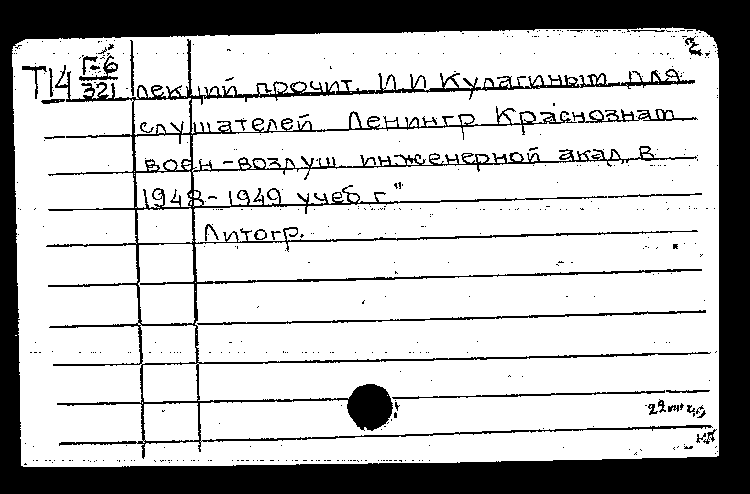 2.
Т14 Г-6
321 лекций, прочит. И И Кулагиным для
слушателей Ленингр Краснознам
воен-воздуш. инженерной акад. в
1948-1949 учеб г."
Литогр.